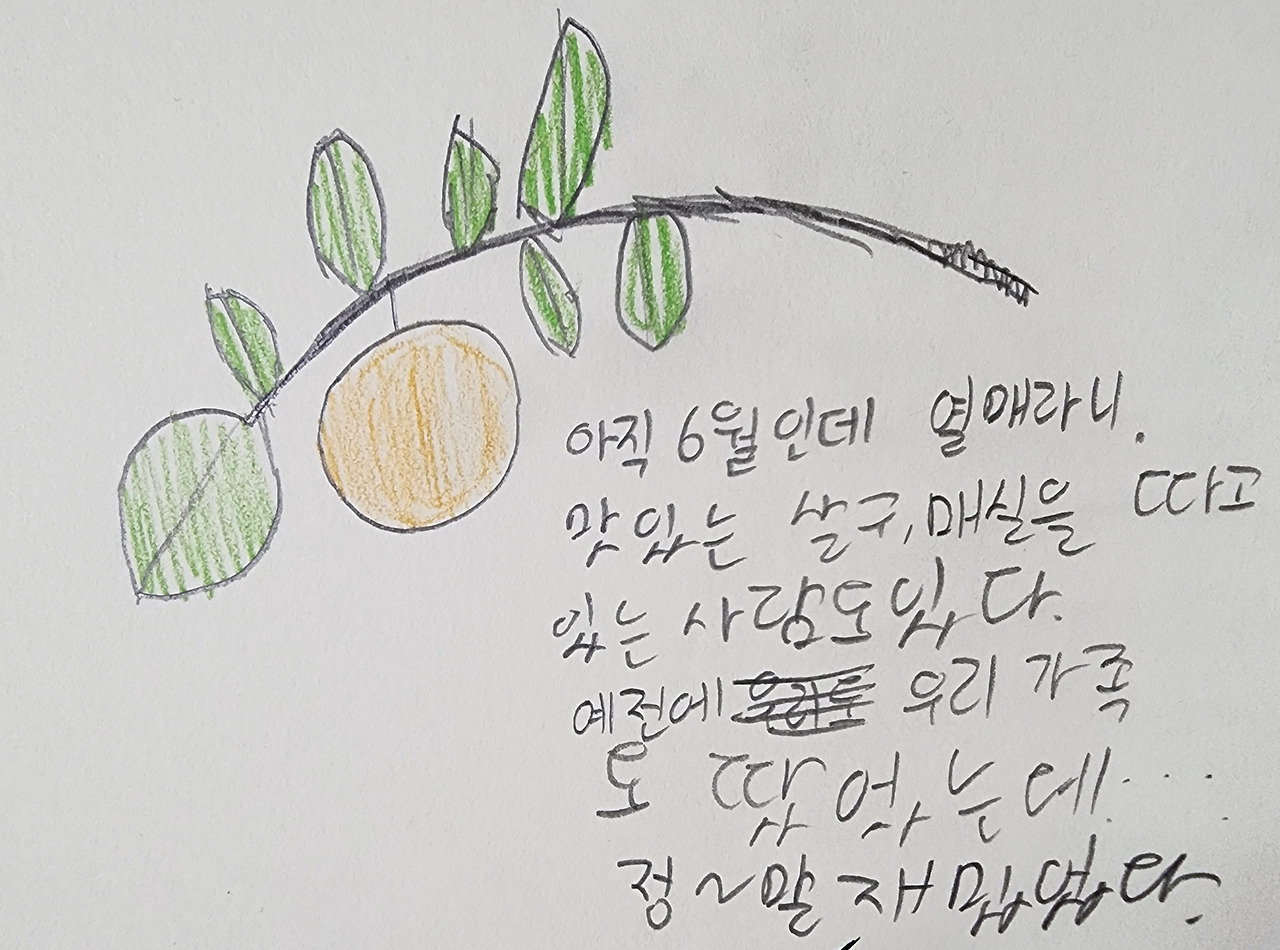 아직 6월인데 열매라니.
맛있는 살구,매실을 따고
있는 사람도 있다.
예전에 우리 가족
도 땄었는데....
정~말 재밌었다.